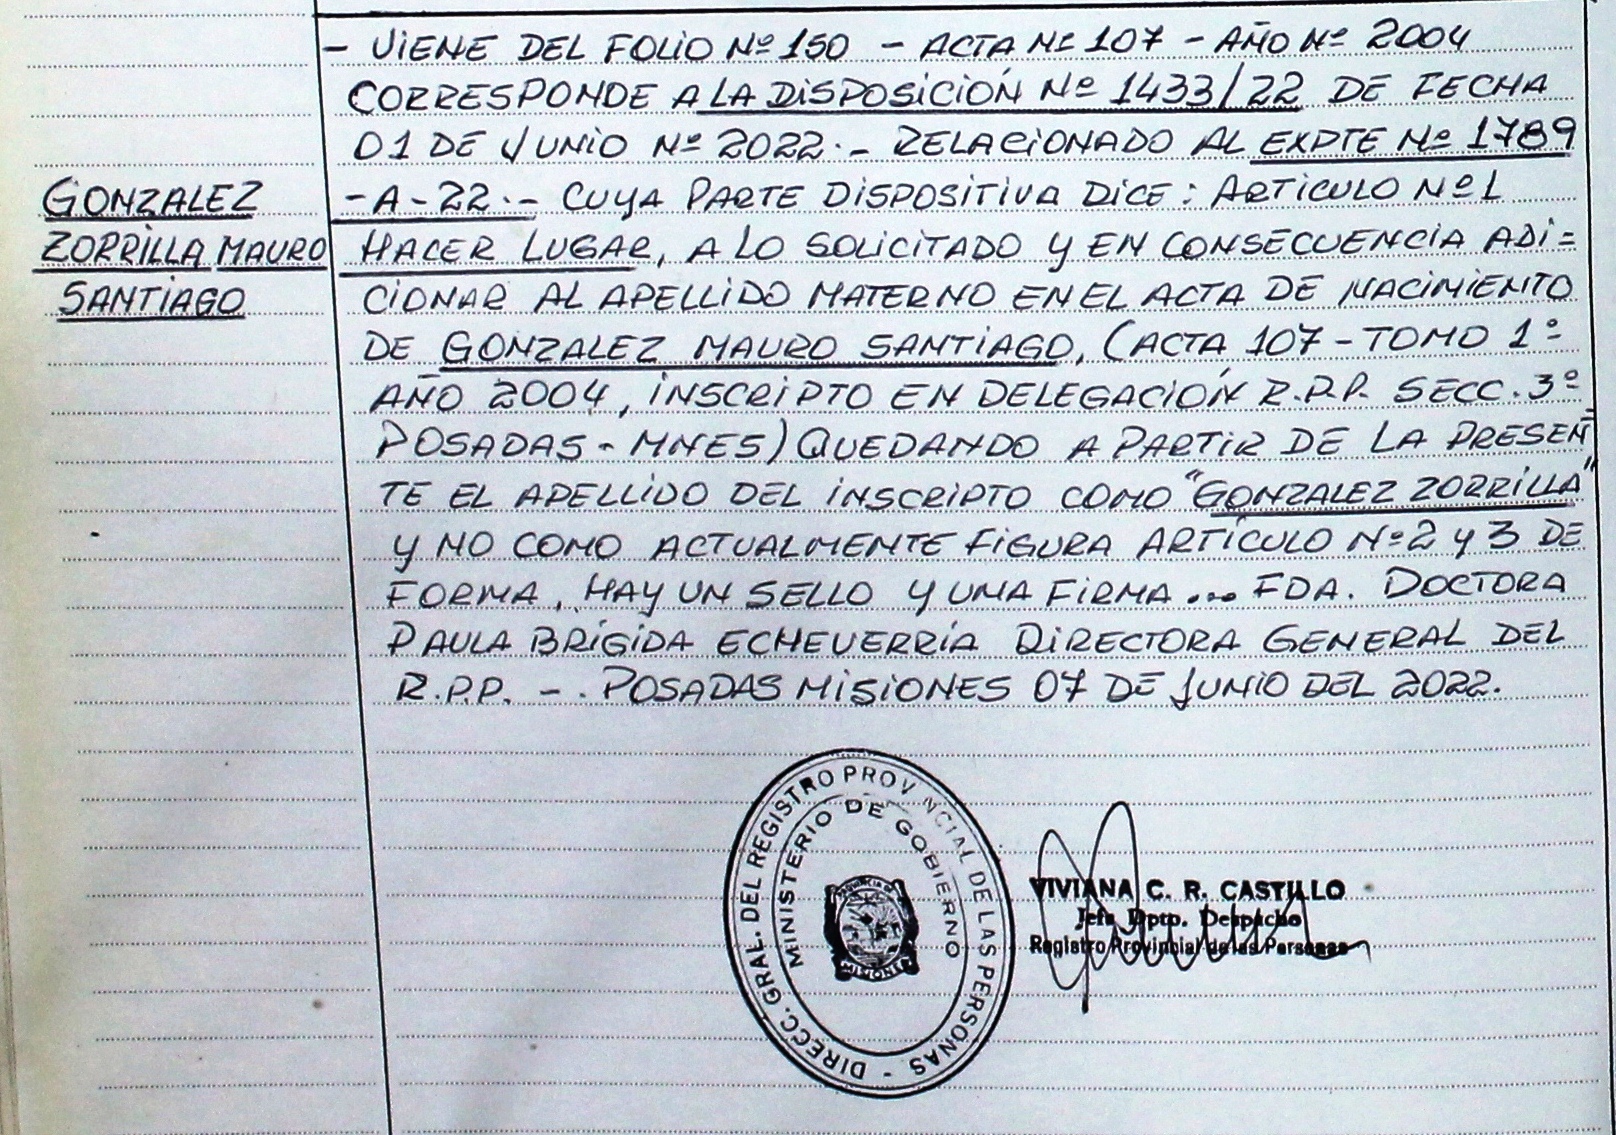 - VIENE DEL FOLIO Nº 150 - ACTA Nº 107 - AÑO Nº 2004
CORRESPONDE A LA DISPOSICIÓN Nº 1433/22 DE FECHA
01 DE JUNIO Nº 2022.- RELACIONADO AL EXPTE Nº 1789
-A-22.- CUYA PARTE DISPOSITIVA DICE: ARTICULO Nº1
HACER LUGAR, A LO SOLICITADO Y EN CONSECUENCIA ADI=
CIONAR AL APELLIDO MATERNO EN EL ACTA DE NACIMIENTO
DE GONZALEZ MAURO SANTIAGO, (ACTA 107 - TOMO 1º
AÑO 2004, INSCRIPTO EN DELEGACIÓN R.P.P. SECC. 3º
POSADAS - MNES) QUEDANDO A PARTIR DE LA PRESEN=
TE EL APELLIDO DEL INSCRIPTO COMO "GONZALEZ ZORRILLA"
Y NO COMO ACTUALMENTE FIGURA ARTÍCULO Nº2 Y 3 DE
FORMA. HAY UN SELLO Y UNA FIRMA... FDA. DOCTORA
PAULA BRÍGIDA ECHEVERRÍA DIRECTORA GENERAL DEL
R.P.P. -. POSADAS MISIONES 07 DE JUNIO DEL 2022.
GONZALEZ
ZORRILLA MAURO
SANTIAGO
DIRECC. GRAL. DEL REGISTRO PROVINCIAL DE LAS PERSONAS -
MINISTERIO DE GOBIERNO
PROVINCIA DE
MISIONES
VIVIANA C. R. CASTILLO
Jefa Dpto. Despacho
Registro Provincial de las Personas